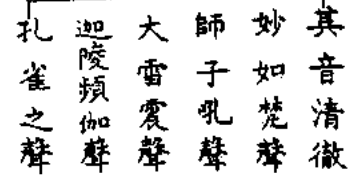 其音清徹
妙如梵聲
師子吼聲
大雷震聲
迦陵頻伽聲
孔雀之聲